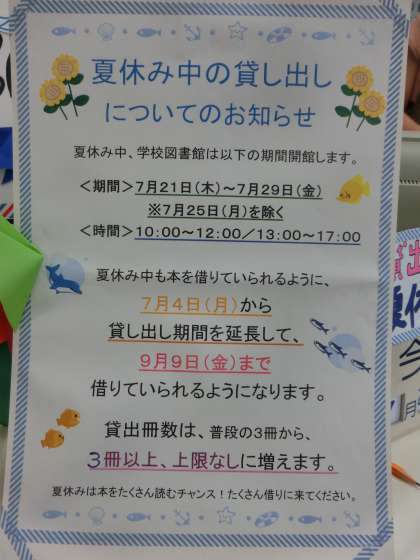 夏休み中の貸し出し
についてのお知らせ
夏休み中、学校図書館は以下の期間開館します。
＜期間＞7月21日(木)～7月29日(金)
※7月25日(月)を除く
＜時間＞10:00～12:00／13:00～17:00
夏休み中も本を借りていられるように、
7月4日(月)から
貸し出し期間を延長して、
9月9日(金)まで
借りていられるようになります。
貸出冊数は、普段の3冊から、
3冊以上、上限なしに増えます。
夏休みは本をたくさん読むチャンス！たくさん借りに来てください。